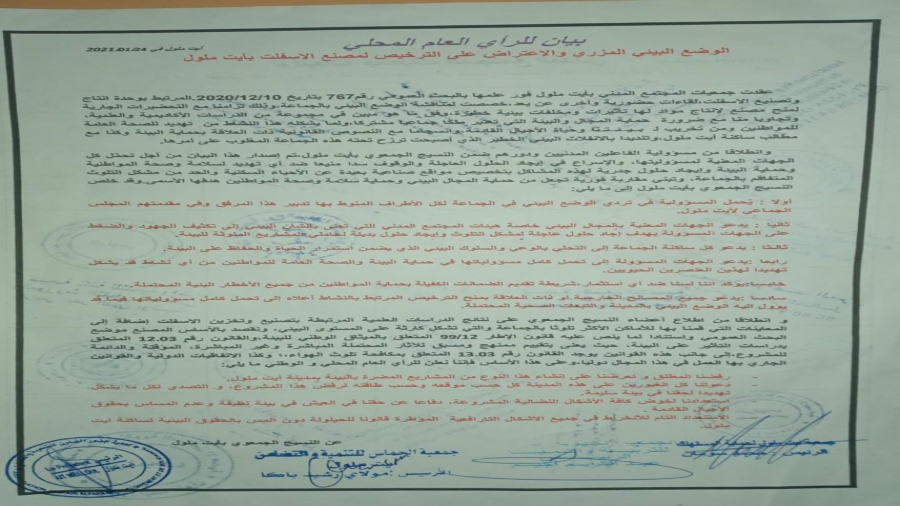 بيان للرأي العام المحلي
ايت ملول في 2021/01/24
الوضع البيئي المزري والاعتراض على الترخيص لمصنع الاسفلت بايت ملول
عقدت جمعيات المجتمع المدني بايت ملول فور علمها بالبحث العمومي رقم 767 بتاريخ 2020/12/10 المرتبط بوحدة انتاج
وتصنيع الاسفلت، لقاءات حضورية وأخرى عن بعد، خصصت لمناقشة الوضع البيئي بالجماعة، وذلك تزامنا مع التحضيرات الجارية
لمنح مصنع لإنتاج مواد لها تأثيرات ومخلفات بيئية خطيرة، وفق ما هو مبين في مجموعة من الدراسات الأكاديمية والعلمية،
وتجاوبا منا مع ضرورة حماية المجال والبيئة التي يعتبر حقا جماعيا مشتركا، ولما يشكل هذا النشاط من تهديد للصحة العامة
للمواطنين ومن تخريب لـ بيـئـتـنا وحياة الأجيال القادمة، وانسجاما مع النصوص القانونية ذات العلاقة بحماية البيئة وكذا مع
مطالب ساكنة ايت ملول، وتنديدا بالانفلات البيئي الخطير الذي أصبحت ترزح تحته هذه الجماعة المغلوب على أمرها.
وانطلاقا من مسؤولية الفاعلين المدنيين ودورهم ضمن النسيج الجمعوي بايت ملول، تم إصدار هذا البيان من أجل تحمل كل
الجهات المعنية لمسؤوليتها، والإسراع في إيجاد الحلول العاجلة والوقوف سدا منيعا ضد أي تهديد لسلامة وصحة المواطنة
وحماية البيئة وإيجاد حلول جذرية لهذه المشاكل بتخصيص مواقع صناعية بعيدة عن الأحياء السكنية والحد من مشكل التلوث
المتفاقم بالجماعة، وتبني مقاربة فورية تجعل من حماية المجال البيئي وحماية سلامة وصحة المواطنين هدفها الأسمى، وقد خلص
النسيج الجمعوي بايت ملول إلى ما يلي:
أولا : يحمل المسؤولية في تردي الوضع البيئي في الجماعة لكل الأطراف المنوط بها تدبير هذا المرفق وفي مقدمتهم المجلس
الجماعي لايت ملول.
ثانيا : يدعو الجهات المعنية بالمجال البيئي خاصة هيئات المجتمع المدني التي تعنى بالشأن البيئي إلى تكثيف الجهود والضغط
على الجهات المسؤولة بهدف إيجاد حلول عاجلة لمشكل التلوث وإيجاد حلول بديلة المشاريع الملوثة للبيئة.
ثالثا : يدعو كل ساكنة الجماعة إلى التحلي بالوعي والسلوك البيئي الذي يضمن استمرار الحياة والحفاظ على البيئة.
رابعا: يدعو الجهات المسؤولة إلى تحمل كامل مسؤولياتها في حماية البيئة والصحة العامة للمواطنين من أي نشاط قد يشكل
تهديدا لهذين العنصرين الحيويين.
خامسا: يؤكد أننا لسنا ضد أي استثمار، شريطة تقديم الضمانات الكفيلة بحماية المواطنين من جميع الأخطار البيئية المحتملة.
سادسا : يدعو جميع المصالح الخارجية أو ذات العلاقة بمنح الترخيص المرتبط بالنشاط أعلاه إلى تحمل كامل مسؤولياتها فيما قد
يؤول اليه الوضع البيئي بالمدينة والتبعات الصحية المحتملة.
و انطلاقا من اطلاع أعضاء النسيج الجمعوي على نتائج الدراسات العلمية المرتبطة بتصنيع وتخزين الاسفلت إضافة إلى
المعاينات التي قمنا بها للأماكن الأكثر تلوثا بالجماعة والتي تشكل كارثة على المستوى البيئي، ونقصد بالأساس المصنع موضع
البحث العمومي واستنادا لما ينص عليه قانون الإطار 99/12 المتعلق بالميثاق الوطني للبيئة، والقانون رقم 12.03 المتعلق
بدراسات التأثير على البيئة، حيث يعنى بتقييم ممنهج ومسبق للآثار المحتملة المباشرة وغير المباشرة، المؤقتة والدائمة
للمشروع، إلى جانب هذه القوانين يوجد القانون رقم 13.03 المتعلق بمكافحة تلوث الهواء، وكذا الاتفاقيات الدولية والقوانين
الجاري بها العمل في هذا المجال دوليا، وعلى هذا الأساس فإننا نعلن للرأي العام المحلي و الوطني ما يلي:
- رفضنا المطلق و تعرضنا على إنشاء هذا النوع من المشاريع المضرة بالبيئة بمدينة ايت ملول.
- دعوتنا كل الغيورين على هذه المدينة كل حسب موقعه وحسب طاقته لرفض هذا المشروع، و التصدي لكل ما يشكل
تهديدا لحقنا في بيئة سليمة.
- استعدادنا لخوض كافة الأشكال النضالية المشروعة، دفاعا عن حقنا في العيش في بيئة نظيفة وعدم المساس بحقوق
الأجيال القادمة.
- الاستعداد التام للانخراط في جميع الاشكال الترافعية المؤطرة قانونا للحيلولة دون المس بالحقوق البيئية لساكنة ايت
ملول.
عن النسيج الجمعوي بايت ملول
جمعية الحماس للتنمية والتضامن
ايت ملول
الرئيس : مولاي رشيد باكا